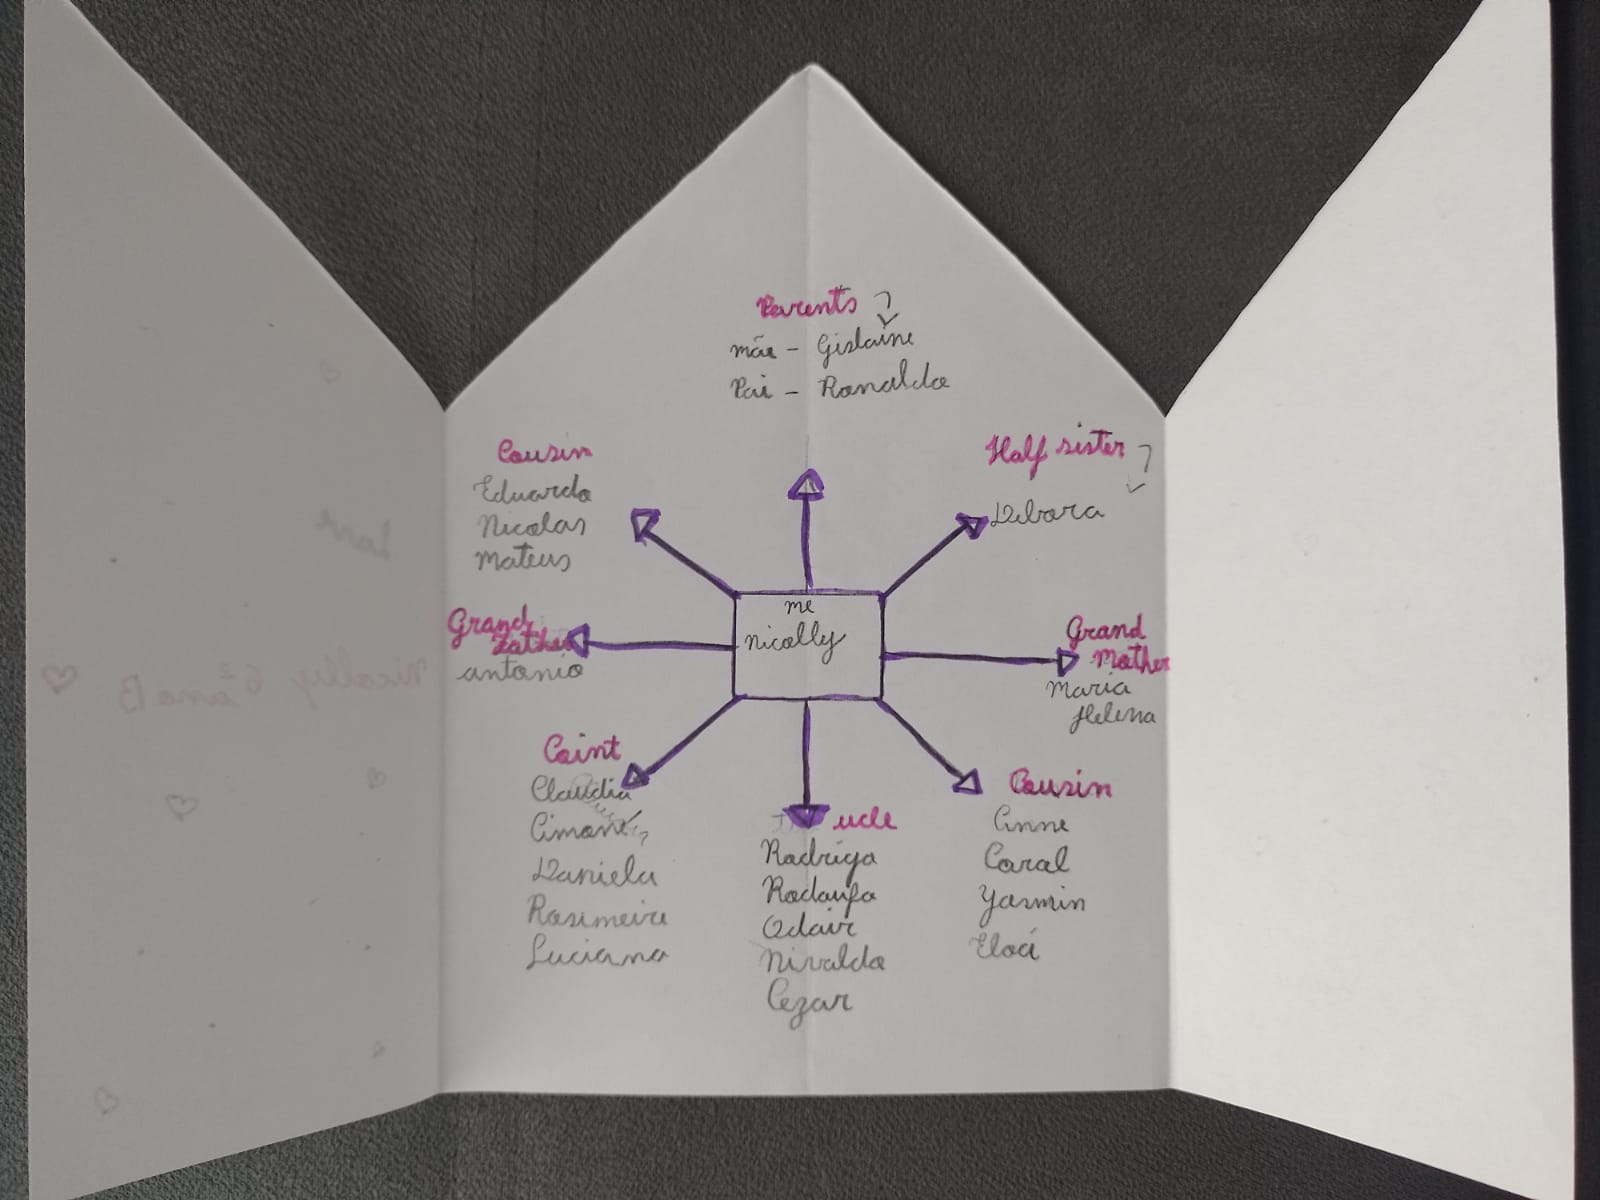 Parents
mãe - Gislaine
Pai - Ronaldo
Half sister
Debora
Cousin
Eduardo
Nicolas
Mateus
me
nicolly
Grand
Father
antonio
Grand
Mother
maria
Helena
Claudia
Daniela
Rosimeire
Luciana
ucle
Rodrigo
Odair
Nivaldo
Cezar
Cousin
Anne
Carol
Yasmin
Eloá
Love
Nicolly 6º ano B